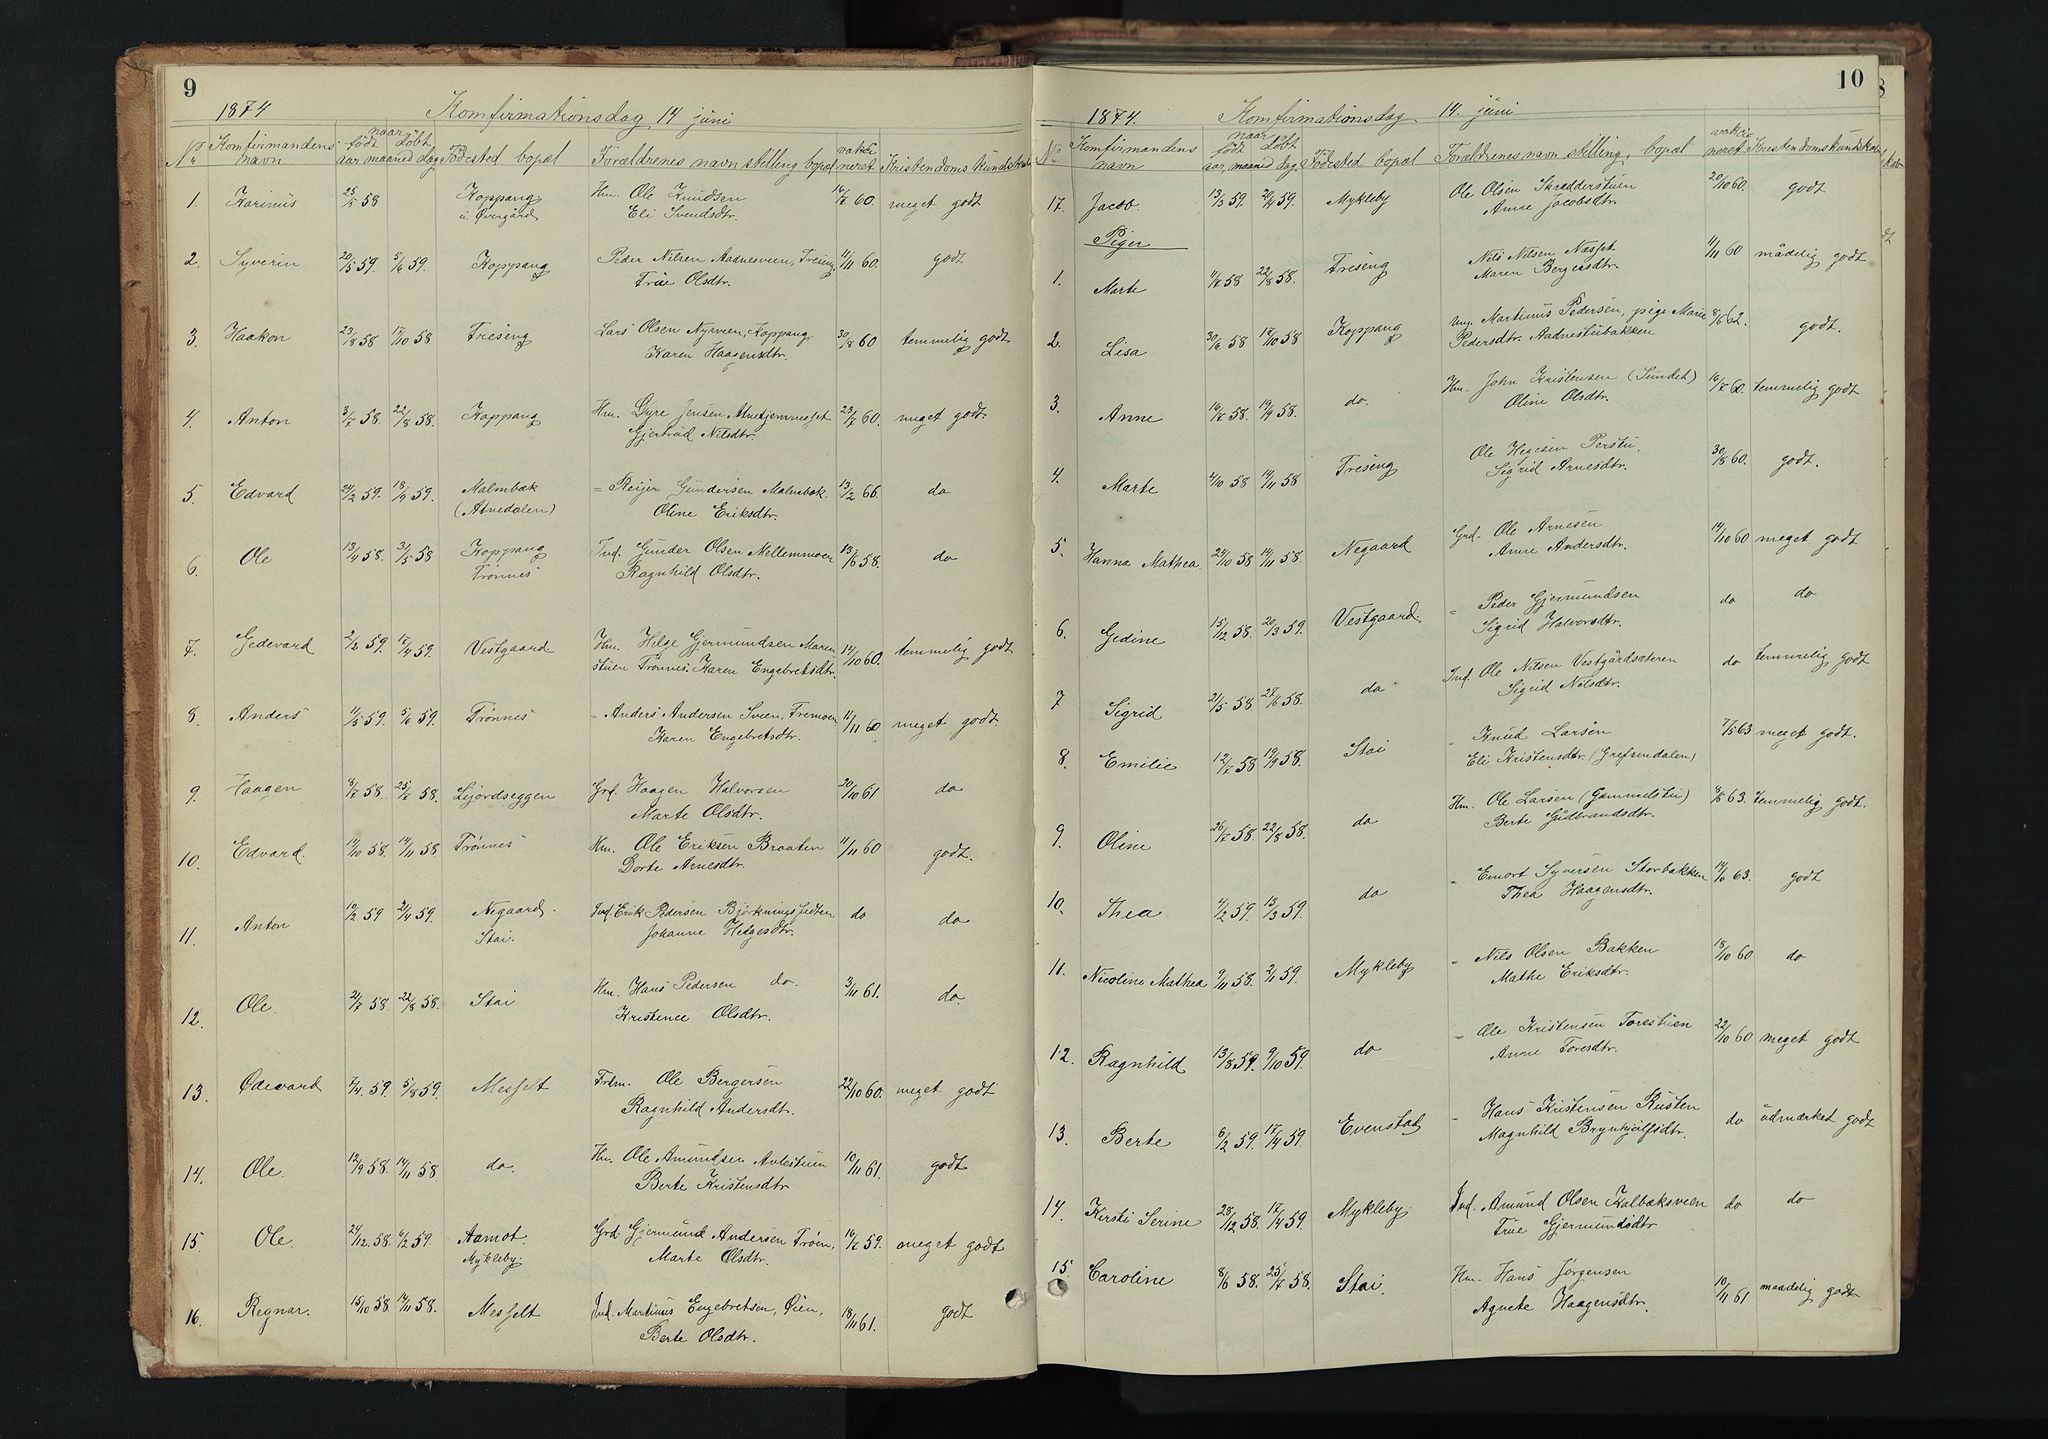 9
1874 Komfirmationsdag 14 juni
No. Komfirmandens navn naar født døbt aar, maaned dag Fødested bopæl Forældrenes navn stilling bopæl vakcineret Kristendoms kundskab
1. Karinus 25/5 58 Koppang Hm. Ole Knudsen 60. meget godt
u. Øvergård Eli Svendsdtr.
2. Syverin 20/5 59. 5/6 59. Koppang Peder Nilsen Aadnesveen, Treseng, 11/11 60. godt
Olsdtr.
3. Haakon 23/8 58 17/10 58 Treseng Lars Olsen Nyveen, Koppang. 30/8 60 temmelig godt
Karen Haagensdtr.
4. Anton 3/7 58. 22/8 58. Koppang Hm. Gjertrud Nilsdtr. 23/7 60. meget godt.
5. Edvard 59. 18/9 59. Malmbæk = Reijer Gundersen Malmbæk. 13/2 66. do
(Atnedalen) Oline Eriksdtr.
6. Ole 13/4 58. 3/5 58 Koppang Ind. Gunder Olsen Mellemmoen 13/6 58. do
Trønnes Ragnhild Olsdtr.
7. Gedevard 2/2 59. 17/4 59. Vestgaard Hm. Helge Gjermundsen Maren 14/10 60. temmelig godt
stuen Trønnes. Karen Engebretsdtr.
8. Anders 11/5 59. 5/6 59. Trønnes = Anders Andersen Sveen, Tremoen 11/11 60 meget godt.
Karen Engebretsdtr.
9. Haagen 8/7 58. 25/7 58. Lijordseggen Grd. Haagen Halvorsen 20/10 61 do
Marte Olsdtr.
10. Edvard. 14/10 58. 14/11 58 Trønnes Hm. Ole Eriksen Braaten 11/11 60 godt.
Dorte Arnesdtr.
11. Anton 10/2 59 2/4 59. Negaard. Ind. Erik Pedersen do do
Stai. Johanne Helgesdtr.
12. Ole. 2/7 58. 22/8 58. Stai Hm. Hans Pedersen do. 3/11 61. do.
Kristence Olsdtr.
13. Ødevard 7/4 59. 5/8 59. Messelt Frdm. Ole Bergersen 22/10 60. meget godt
Ragnhild Andersdt.
14. Ole. 12/9 58. 14/11 58 do. Hm. Ole Amundsen Avlestuen 10/11 61. godt
Berte Kristensdtr
15. Ole. 24/12 58. 6/2 59. Aamot. Grd. Gjermund Andersen Trøen, 16/7 59. meget godt
Mykleby. Marte Olsdtr.
16. Regnar. 15/10 58. 17/11 58. Messelt Ind. Martinus Engebretsen, Øien, 18/11 61. godt
Berte Olsdtr.
10
1874. Komfirmationsdag 14. juni
No. Komfirmandens navn naar født døbt aar, maaned dag. Fødested bopæl Forældrenes navn stilling, bopæl vakcineret Kristendomskundskab
17. Jacob. 13/3 59. 20/4 59. Mykleby Ole Olsen Skrædderstuen 20/10 60. godt
Anne Jacobsdtr.
Piger
1. Marte 11/7 58 22/8 58. Treseng Nils Nilsen Næsset 11/11 60 mådelig godt
Maren Bergersdtr.
2. Lisa 30/6 58 17/10 58 Koppang Ung. Martinus Pedersen, pige Marie 8/6 62. godt.
Pedersdtr. Aadnestubakken
3. Anne 16/7 58. 19/9 58. do. Hm. John Kristensen (Sundet) 16/7 60. temmelig godt
Oline Olsdtr.
4. Marte 4/10 58 14/11 58 Treseng Ole Hegesen Perstu, 30/8 60. godt.
Sigrid Arnesdtr.
5. Hanna Mathea. 24/10 58 14/11 58. Negaard Grd. Ole Arnesen 14/10 60 meget godt
Anne Andersdtr.
6. Gedine 15/12 58. 20/3 59. Vestgaard. = Peder Gjermundsen do do
Sigrid Halvorsdtr.
7 Sigrid 21/5 58 27/6 58. do Ind. Ole Nilsen Vestgårdsæteren do temmelig godt
Sigrid Nilsdtr.
8. Emilie 12/7 58 19/9 58. Stai " Knud Larsen 7/5 63 meget godt.
Eli Kristensdtr. (Grefsendalen)
9. Oline 26/7 58. 22/8 58. do Hm. Ole Larsen (Gammelstu) 8/5 63. temmelig godt.
Berte Gudbrandsdtr.
10. Thea 4/2 59. 13/3 59. do = Emort Syversen Storbakken 14/6 63. godt
Thea Haagensdtr.
11. Nicoline Mathea 9/11 58. 2/1 59. Mykleby = Nils Olsen Bakken 18/10 60 do
Mathe Eriksdtr.
12. Ragnhild 13/8 59. 9/10 59. do = Ole Kristensen Torestuen 22/10 60 meget godt
Anne Toresdtr.
13. Berte 6/2 59. 17/4 59. Evenstad = Hans Kristensen Rusten do udmærket godt
Magnhild Brynhjolfsdtr.
14. Kirsti Serine 28/12 58. 17/4 59. Mykleby. Ind. Amund Olsen Kalbæksveen do do
Gjermundsdtr
15. Caroline 8/6 58. 25/7 58. Stai. Hm. Hans Jørgensen 10/11 61 maadelig godt
Agnete Haagensdtr.